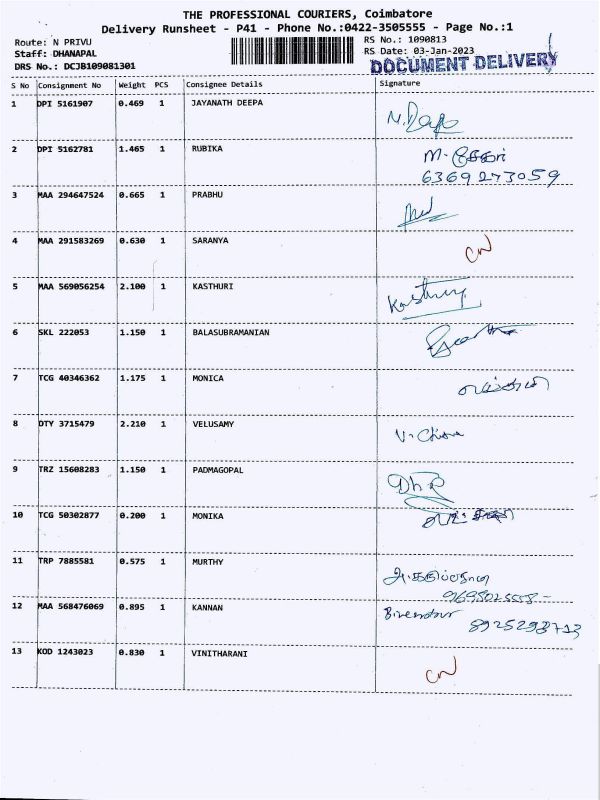 THE PROFESSIONAL COURIERS, Coimbatore
Delivery Runsheet - P41 - Phone No.:0422-3505555 - Page No.:1
Route: N PRIVU RS No.: 1090813
Staff: DHANAPAL RS Date: 03-Jan-2023
DRS No.: DCJB109081301 DOCUMENT DELIVERY
S No Consignment No Weight PCS Consignee Details Signature
1 DPI 5161907 0.469 1 JAYANATH DEEPA
2 DPI 5162781 1.465 1 RUBIKA
6369273059
3 MAA 294647524 0.665 1 PRABHU
4 MAA 291583269 0.630 1 SARANYA
5 MAA 569056254 2.100 1 KASTHURI Kasthury
6 SKL 222053 1.150 1 BALASUBRAMANIAN
7 TCG 40346362 1.175 1 MONICA
8 DTY 3715479 2.210 1 VELUSAMY
9 TRZ 15608283 1.150 1 PADMAGOPAL
10 TCG 50302877 0.200 1 MONIKA
11 TRP 7885581 0.575 1 MURTHY
12 MAA 568476069 0.895 1 KANNAN
8925293713
13 KOD 1243023 0.830 1 VINITHARANI